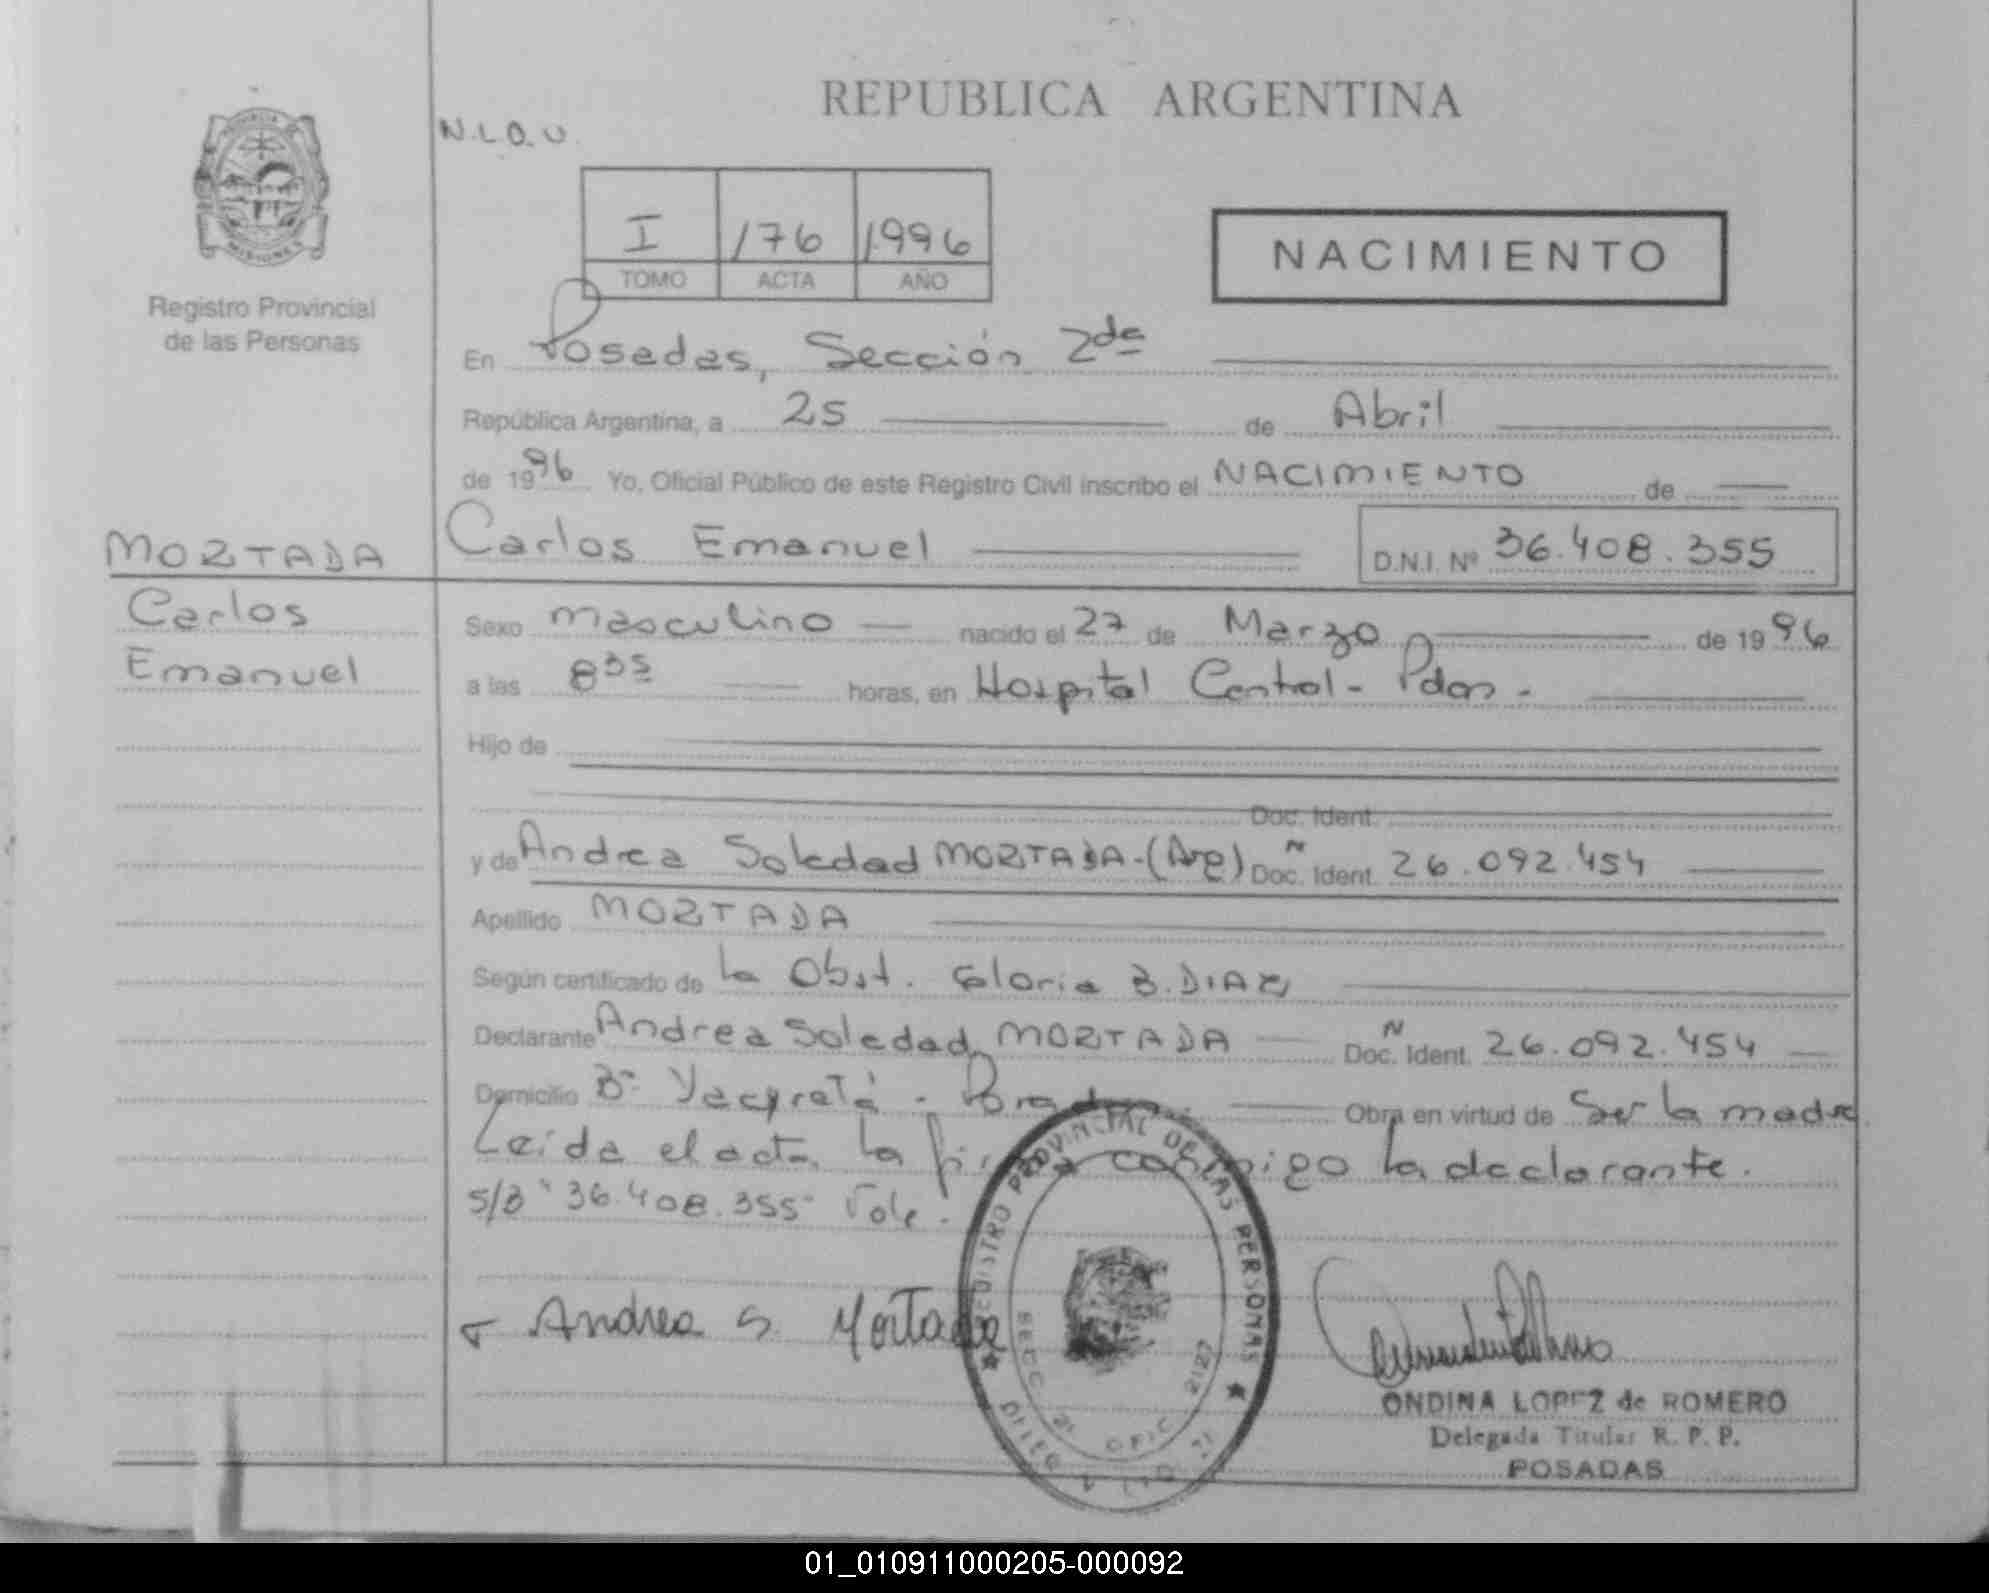 REPUBLICA ARGENTINA
N.L.O.U.
PROVINCIA DE
MISIONES
Registro Provincial
de las Personas
I 176 1996
TOMO ACTA AÑO
NACIMIENTO
En Posadas, Sección 2da
República Argentina, a 25 de Abril
de 1996 Yo, Oficial Público de este Registro Civil inscribo el NACIMIENTO de
MORTADA
Carlos
Emanuel
Carlos Emanuel
D.N.I. Nº 36.408.355
Sexo masculino nacido el 27 de Marzo de 1996
a las 8 35 horas, en Hospital Central - Pdas.
Hijo de
Doc. Ident.
y de Andrea Soledad MORTADA - (Arg) Doc. Ident. N 26.092.454
Apellido MORTADA
Según certificado de la Obst. Gloria B. DIAZ
Declarante Andrea Soledad MORTADA Doc. Ident. N 26.092.454
Domicilio Bº Yacyretá - Obra en virtud de Ser la madre
Leída el acta, la firma conmigo la declarante.
S/B "36.408.355" Vale.
Andrea S. Mortada
REGISTRO PROVINCIAL DE LAS PERSONAS
SECC. OFIC.
ONDINA LOPEZ de ROMERO
Delegada Titular R. P. P.
POSADAS
01_010911000205-000092